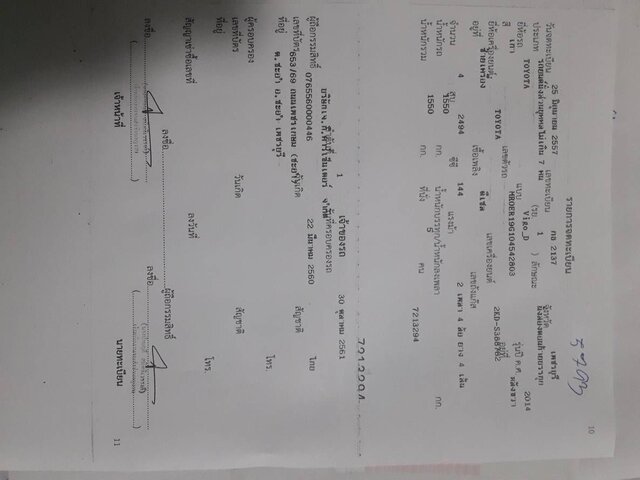 10
5703
รายการจดทะเบียน
วันจดทะเบียน 25 มิถุนายน 2557 เลขทะเบียน กธ 2137 จังหวัด เพชรบุรี
ประเภท รถยนต์นั่งส่วนบุคคลไม่เกิน 7 คน (รย. 1 ) ลักษณะ
ยี่ห้อรถ TOYOTA แบบ Vigo_D รุ่นปี ค.ศ. 2014
สี เทา เลขตัวรถ MR0ER19G104542803 อยู่ที่
ยี่ห้อเครื่องยนต์ TOYOTA เลขเครื่องยนต์ 2KD-S388782
อยู่ที่ เชื้อเพลิง ดีเซล เลขถังแก๊ส
จำนวน 4 สูบ 2494 ซีซี 144 แรงม้า 2 เพลา 4 ล้อ ยาง 4 เส้น
น้ำหนักรถ 1550 กก. น้ำหนักบรรทุก/น้ำหนักลงเพลา กก.
น้ำหนักรวม 1550 กก. ที่นั่ง 5 คน 7213294
7213294
เจ้าของรถ
1 วันที่ครอบครองรถ 30 ตุลาคม 2561
ผู้ถือกรรมสิทธิ์ จำกัด
เลขที่บัตร 0765560000446 วันเกิด 22 มีนาคม 2560 สัญชาติ ไทย
ที่อยู่ 853/69 ถนนเพชรเกษม (ชะอำ)
ต.ชะอำ อ.ชะอำ เพชรบุรี โทร.
ผู้ครอบครอง
เลขที่บัตร วันเกิด สัญชาติ
ที่อยู่ โทร.
สัญญาเช่าซื้อเลขที่ ลงวันที่
ลงชื่อ ผู้ถือกรรมสิทธิ์
ลงชื่อ ลงชื่อ
เจ้าหน้าที่ นายทะเบียน
11